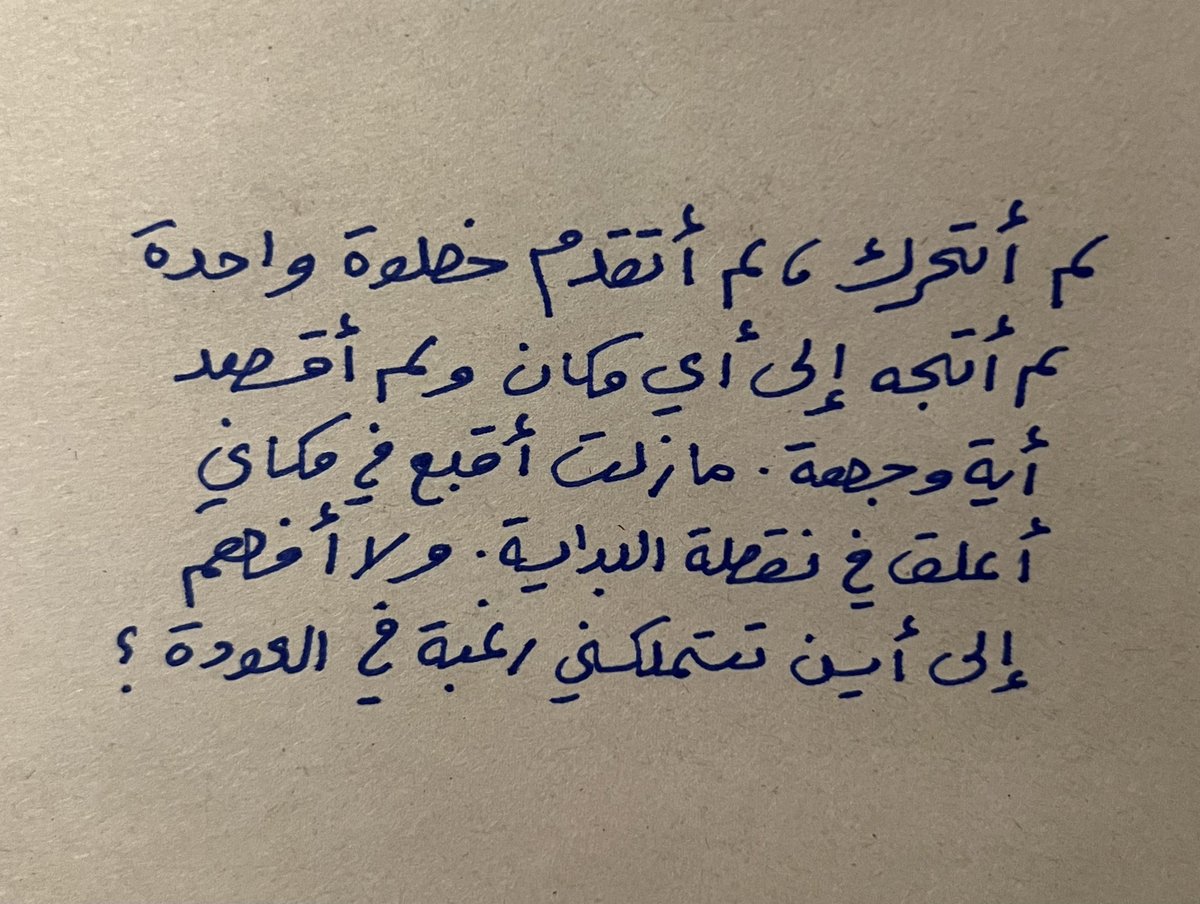 لم أتحرك، لم أتقدم خطوة واحدة
لم أتجه إلى أي مكان ولم أقصد
أية وجهة. مازلت أقبع في مكاني
أعلق في نقطة البداية. ولا أفهم
إلى أين تتملكني رغبة في العودة؟